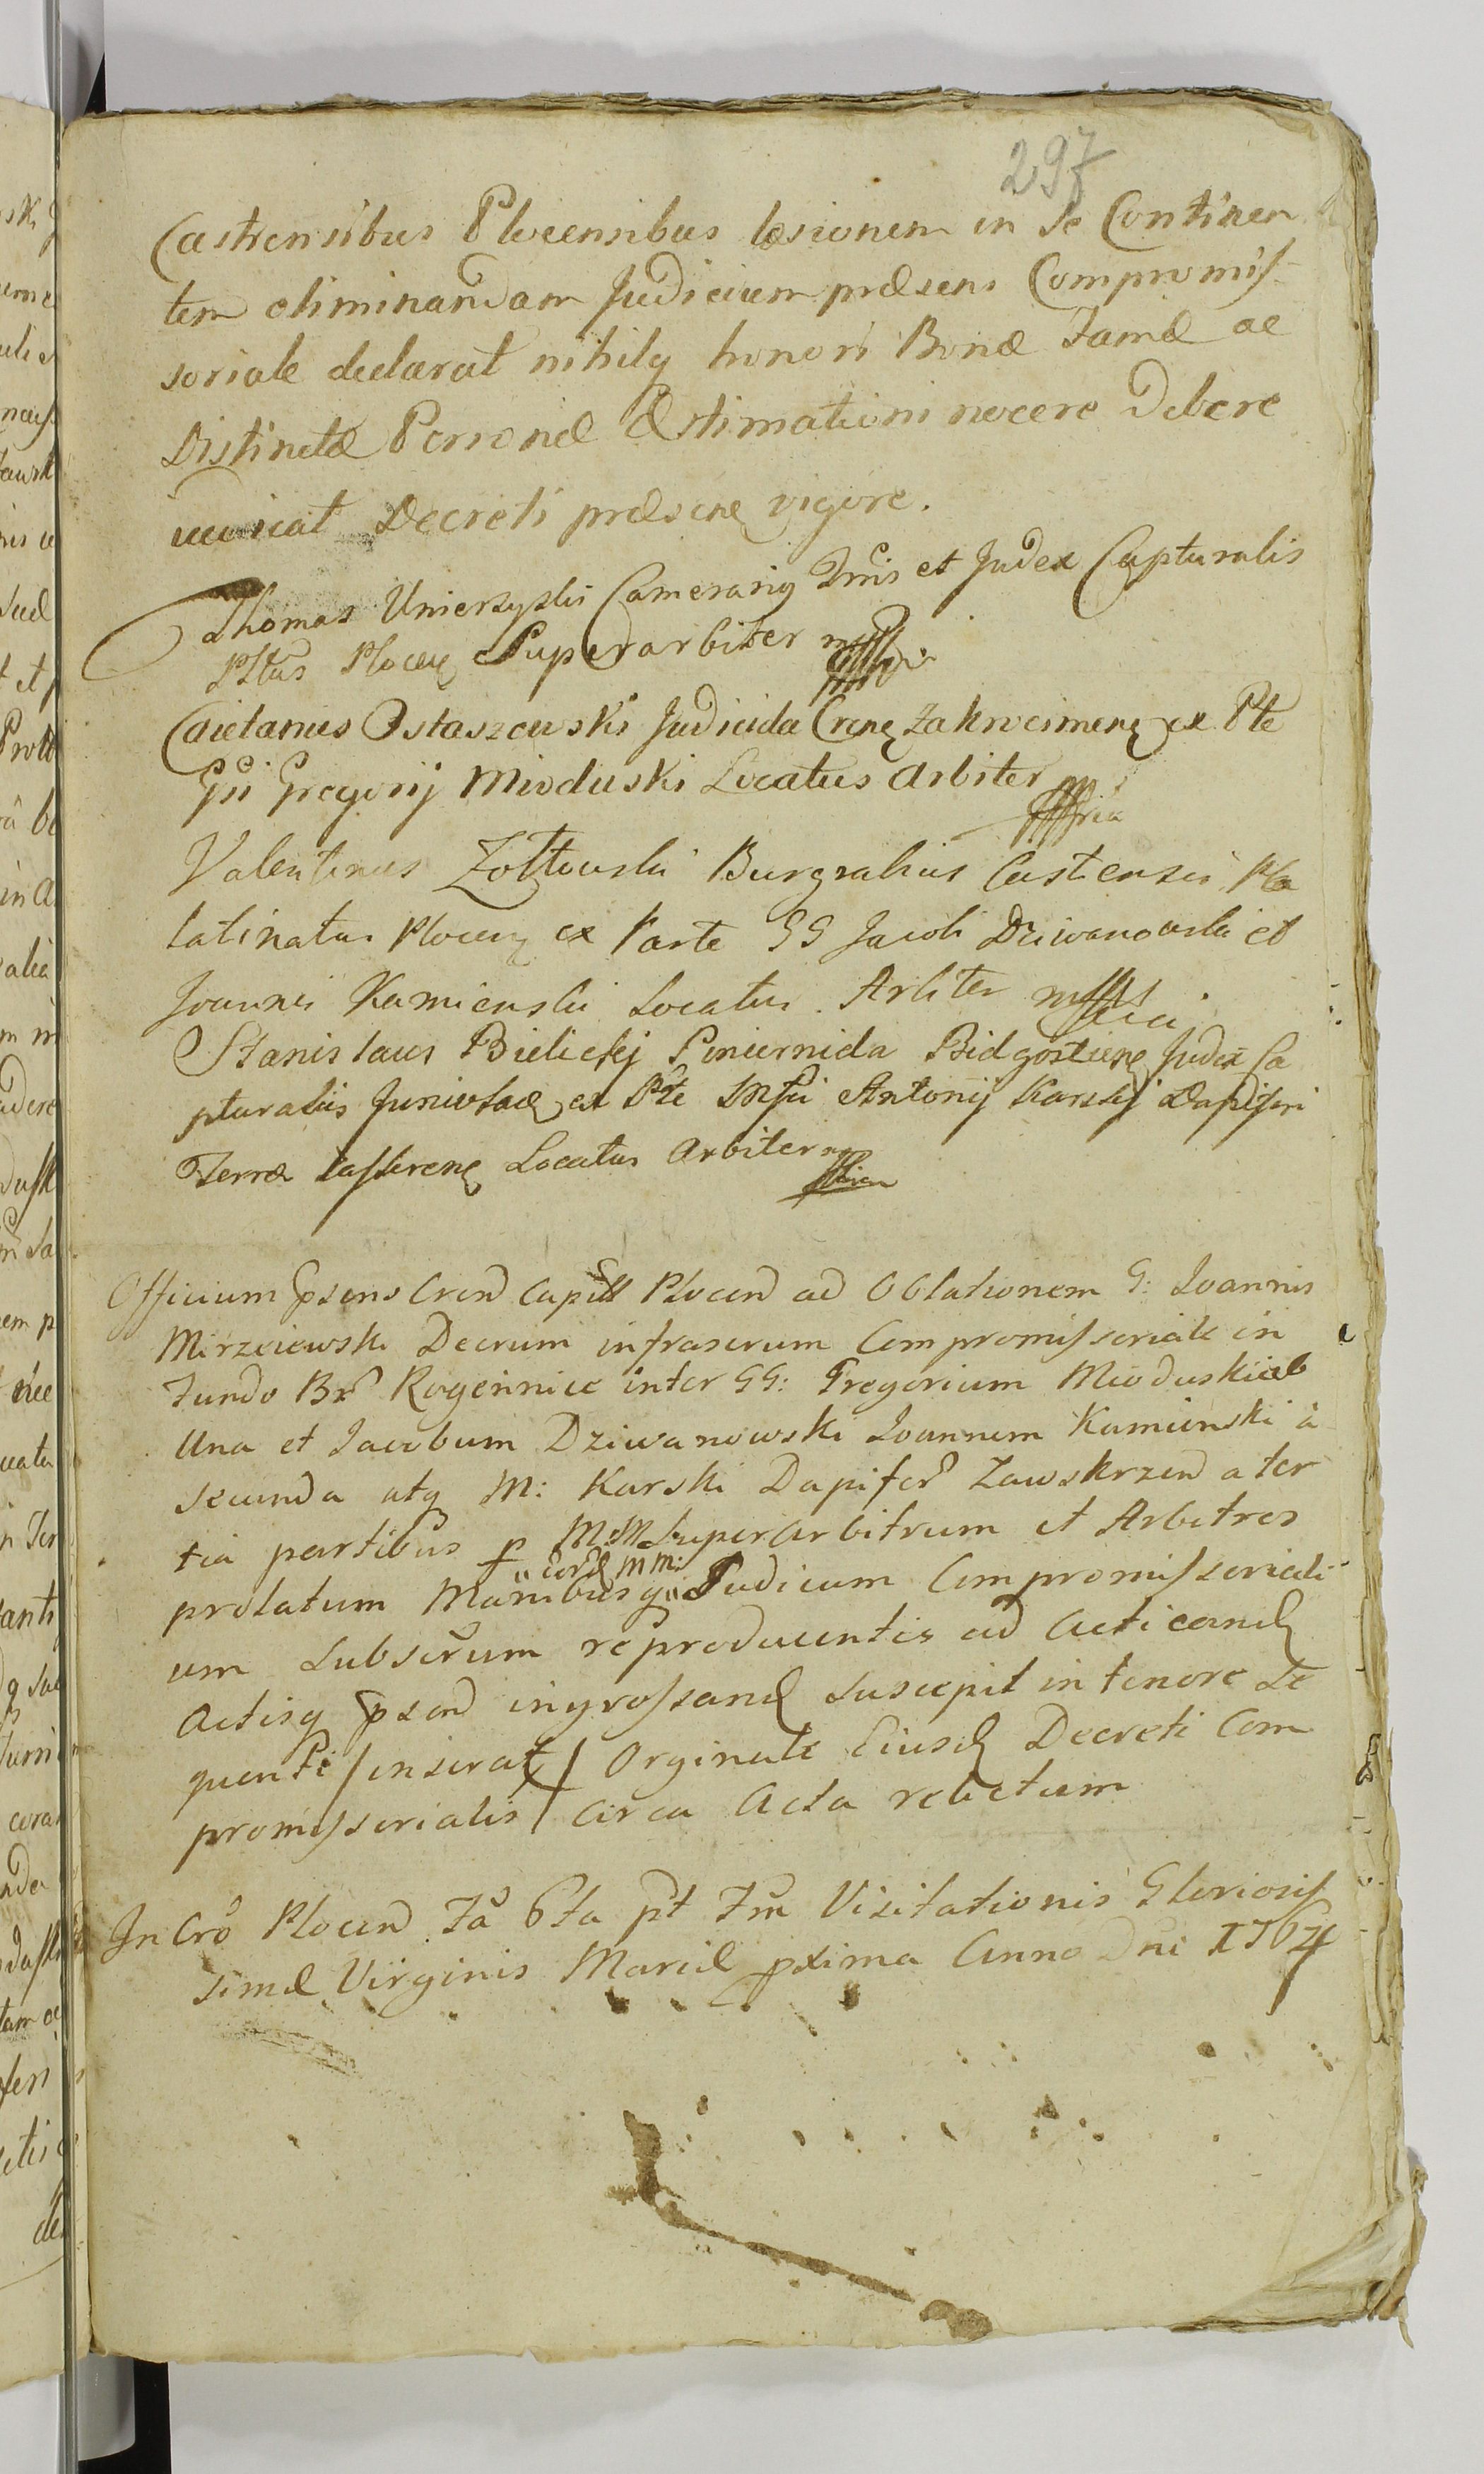 297
Castrensibus Plocensibus læsionem in se Continen
tem eliminandam Judicium præsens Compromis
soriale declarat nihilq honori Bonæ Famæ ac
Distinctæ Personæ Æstimationi nocere debere
Decreti præsenę vigore.
Thomas Unierzyski Camerarig et Judex Capturalis
Pltus Plocenę Superarbiter
Caietanus Ostaszewski Judicida Crenę Zakrocimenę ex Pte
Gsi Gregorij Mioduski Locatus Arbiter
Valentinus Żółtowski Burgrabius Castrensis Pa
latinatus Plocenę ex Parte GG Jacobi Dziwanowski et
Joannis Kamienski Locatus Arbiter
Stanislaus Bielickj Pincernida Bidgostienę Judex Ca
pturalis ex Pte Antonij Karskj Dapiferi
Terræ Locatus Arbiter
Officium Psens Cren Capitt Plocen ad Oblationem G: Joannis
Mirzeiewski Decrum infrascrum Compromissoriale in
Fundo Br Rogennice inter GG: Gregorium Mioduski ab
Una et Jacobum Dziwanowski Joannem Kamienski à
secunda atq M: Karski Dapifer Zawskrzen a ter
tia partibus p M:M Superarbitrum et Arbitros
prolatum Manibusq Judicum Compromissoriali
um Subscrum reproducentis ad Acticand
Actisq psen ingrossand suscepit in tenore Se
quenti /inserat/ Orginale Eiusd Decreti Com
promissorialis / circa Acta relictum
In Cro Plocen Fa 6ta pt Fm Visitationis Gloriosis
simæ Virginis Mariæ pxima Anno Dni 1764